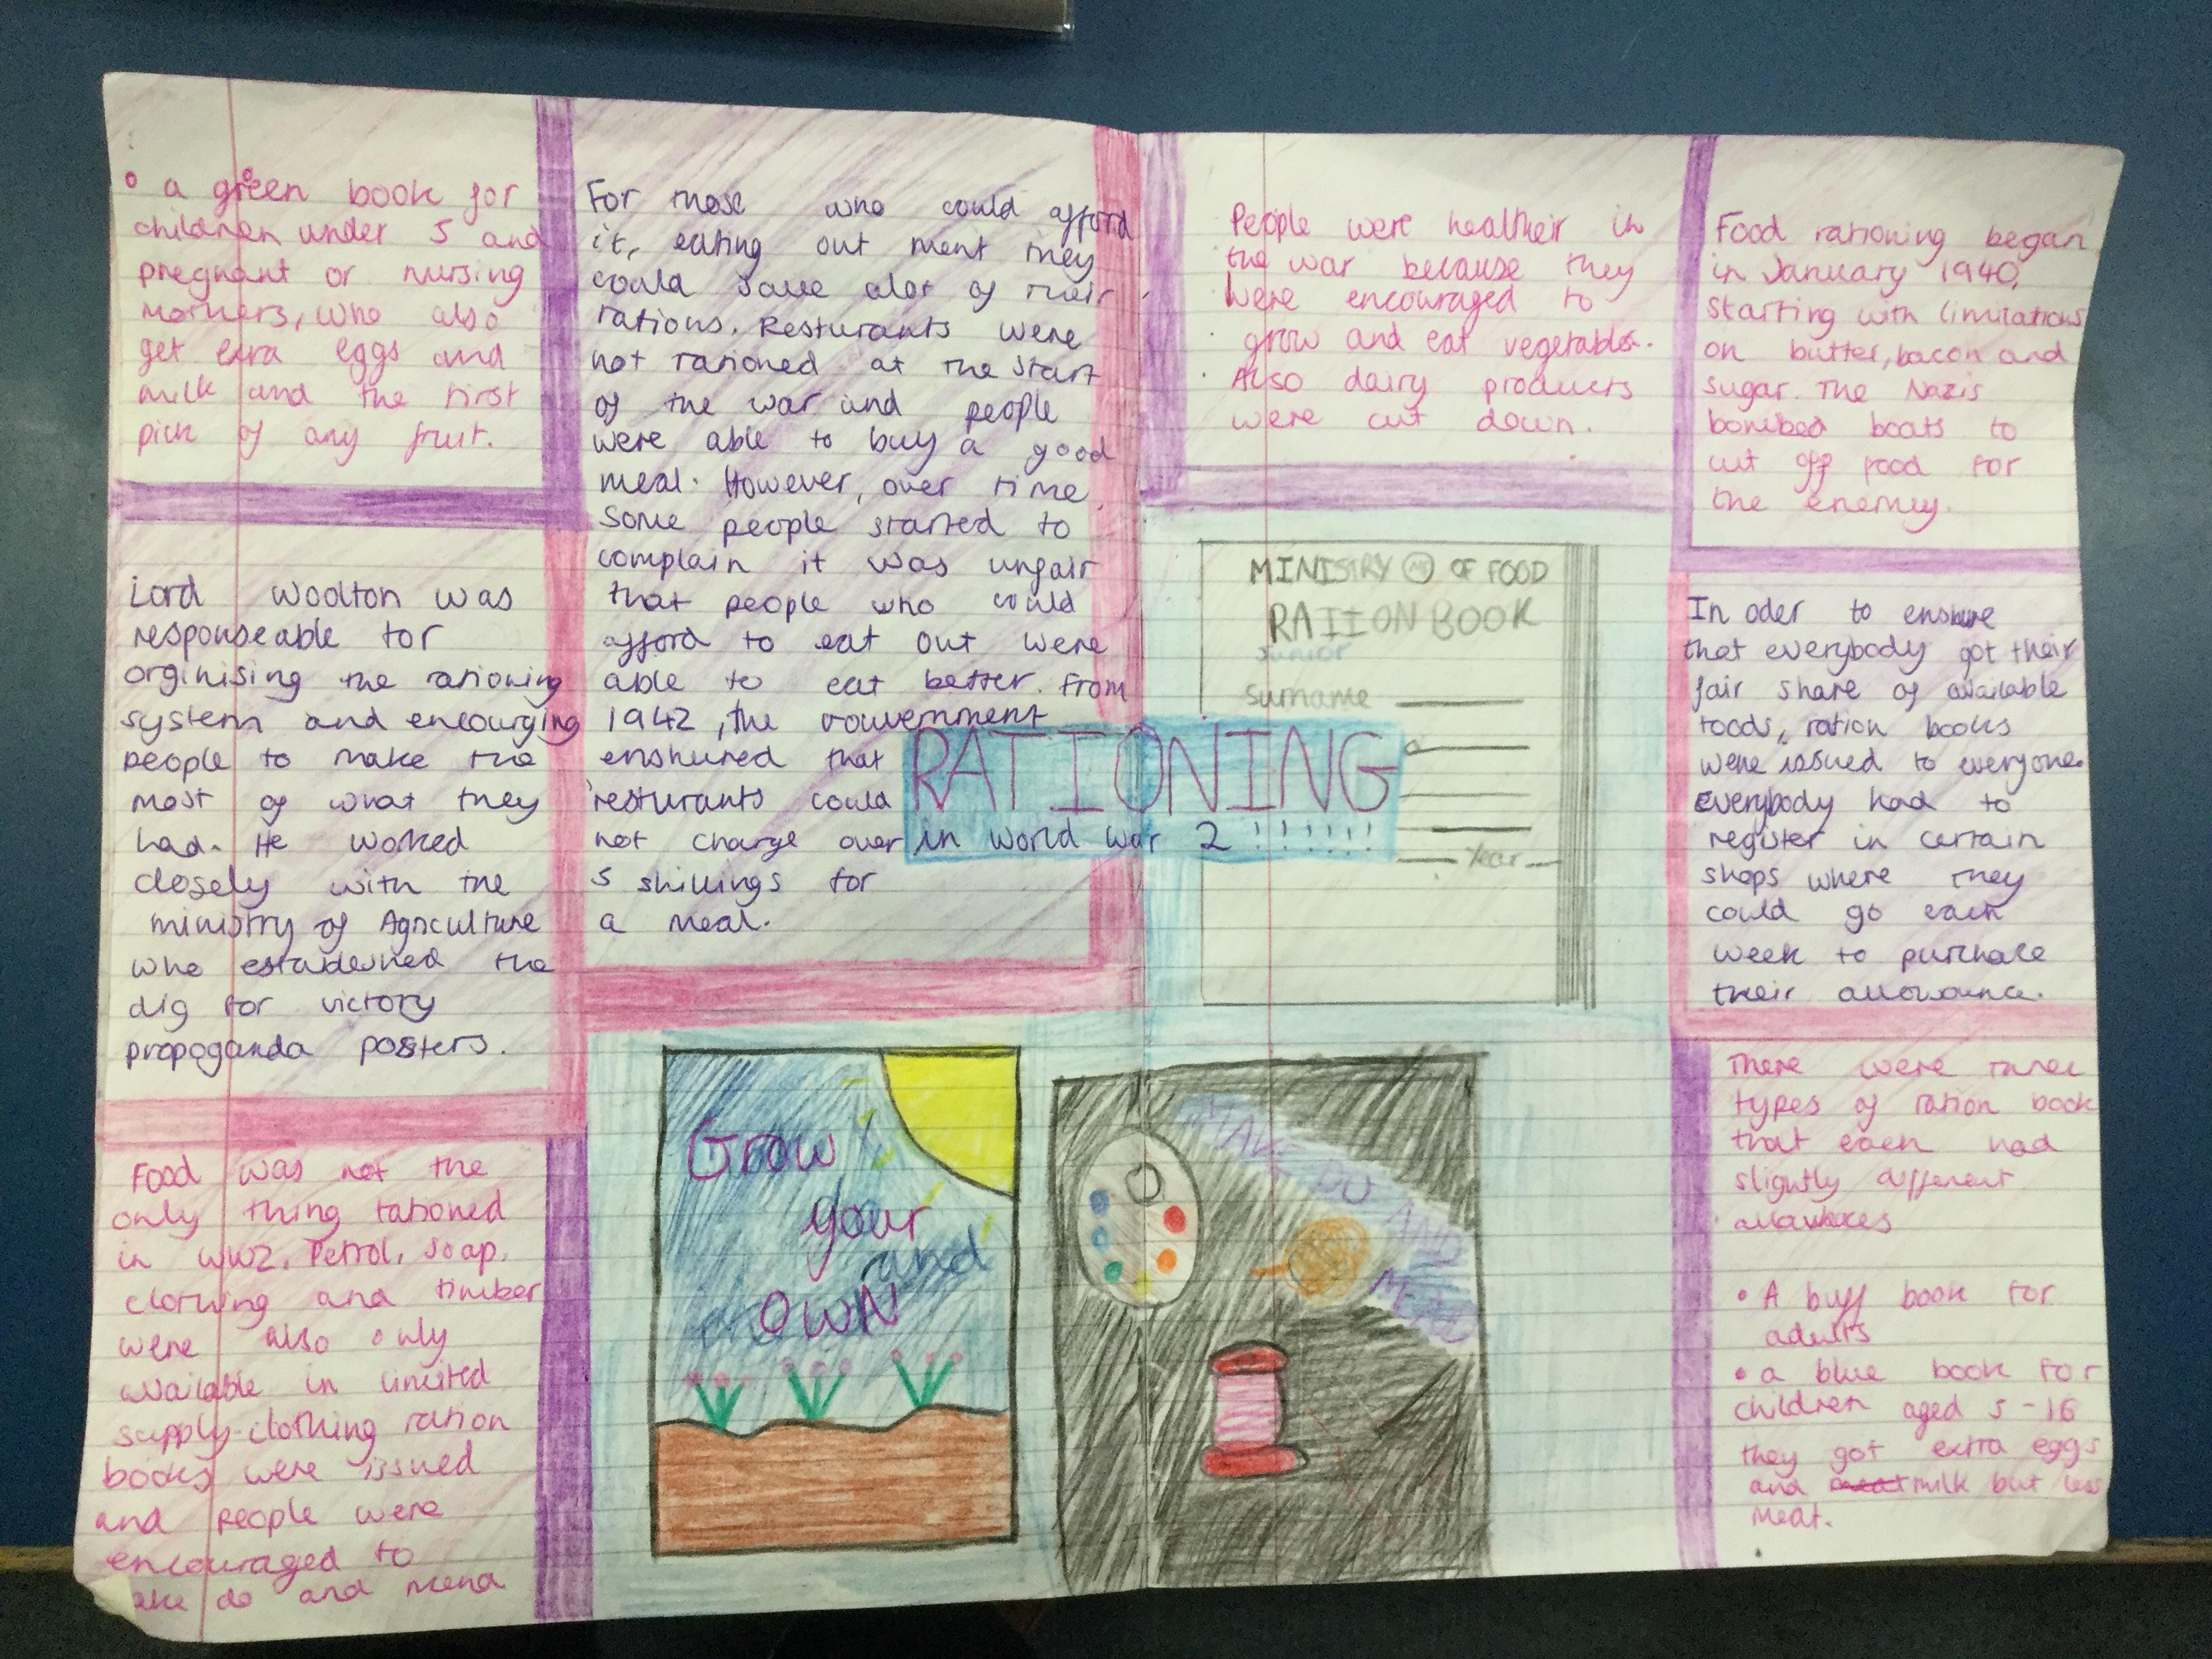 • a green book for
children under 5 and
pregnant or nursing
mothers, who also
get exra eggs and
milk and the first
pick of any fruit.
Lord Woolton was
responseable for
orginising the rationing
system and encourging
people to make the
most of what they
had. He worked
closely with the
ministry of Agriculture
who established the
dig for victory
propoganda posters.
Food was not the
only thing rationed
in WW2. Petrol, soap,
clothing and timber
were also only
available in limited
supply. clothing ration
books were issued
and people were
encouraged to
do and mend
For those who could afford
it, eating out ment they
could save alot of their
rations. Resturants were
not rationed at the start
of the war and people
were able to buy a good
meal. However, over time
some people started to
complain it was unfair
that people who could
afford to eat out were
able to eat better. From
1942, the
enshured that
resturants could
not charge over
5 shillings for
a meal.
RATIONING
in world war 2 !!!!!!
Grow
your
and
OWN
People were healtheir in
the war because they
were encouraged to
grow and eat vegetables.
Also dairy products
were cut down.
MINISTRY OF FOOD
RATION BOOK
Junior
Surname
Year
MAKE DO AND
MEND
Food rationing began
in January 1940,
starting with limitations
on butter, bacon and
sugar. The Nazis
bombed boats to
cut off food for
the enemy.
In oder to enshure
that everybody got their
fair share of available
foods, ration books
were issued to everyone.
everybody had to
register in certain
shops where they
could go each
week to purchase
their allowance.
There were three
types of ration book
that each had
slightly different
allowances
• A buff book for
adults
• a blue book for
children aged 5-16
they got extra eggs
and meat milk but less
meat.